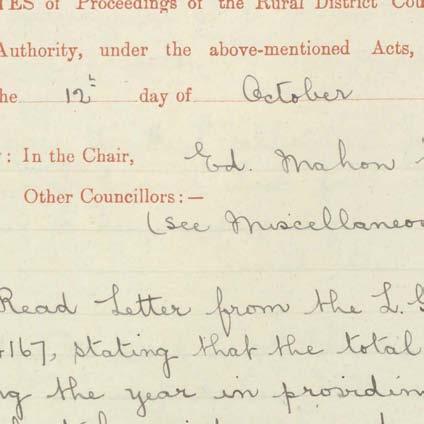 TES of Proceedings of the Rural District Cou
Authority, under the above-mentioned Acts,
he 12th day of October
: In the Chair, Ed. Mahon
Other Councillors:—
(see Miscellaneou
Read Letter from the L.G
167, stating that the total
ng the year in providin